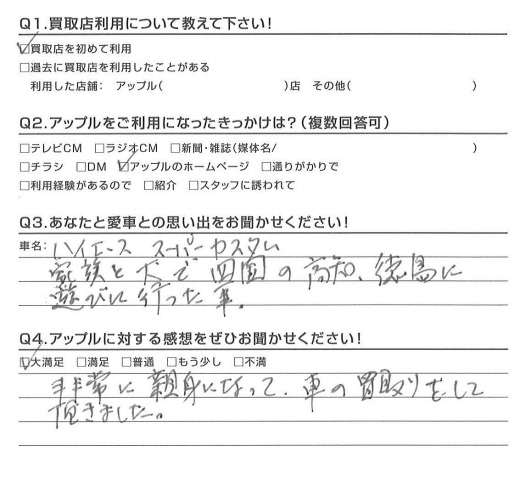 Q1.買取店利用について教えて下さい！
☑買取店を初めて利用
□過去に買取店を利用したことがある
利用した店舗： アップル（ ）店 その他（ ）
Q2.アップルをご利用になったきっかけは？（複数回答可）
□テレビCM □ラジオCM □新聞・雑誌（媒体名/ ）
□チラシ □DM ☑アップルのホームページ □通りがかりで
□利用経験があるので □紹介 □スタッフに誘われて
Q3.あなたと愛車との思い出をお聞かせください！
車名： ハイエース スーパーカスタム
家族と犬で四国の高知、徳島に
遊びに行った車。
Q4.アップルに対する感想をぜひお聞かせください！
☑大満足 □満足 □普通 □もう少し □不満
非常に親身になって、車の買取りをして
頂きました。